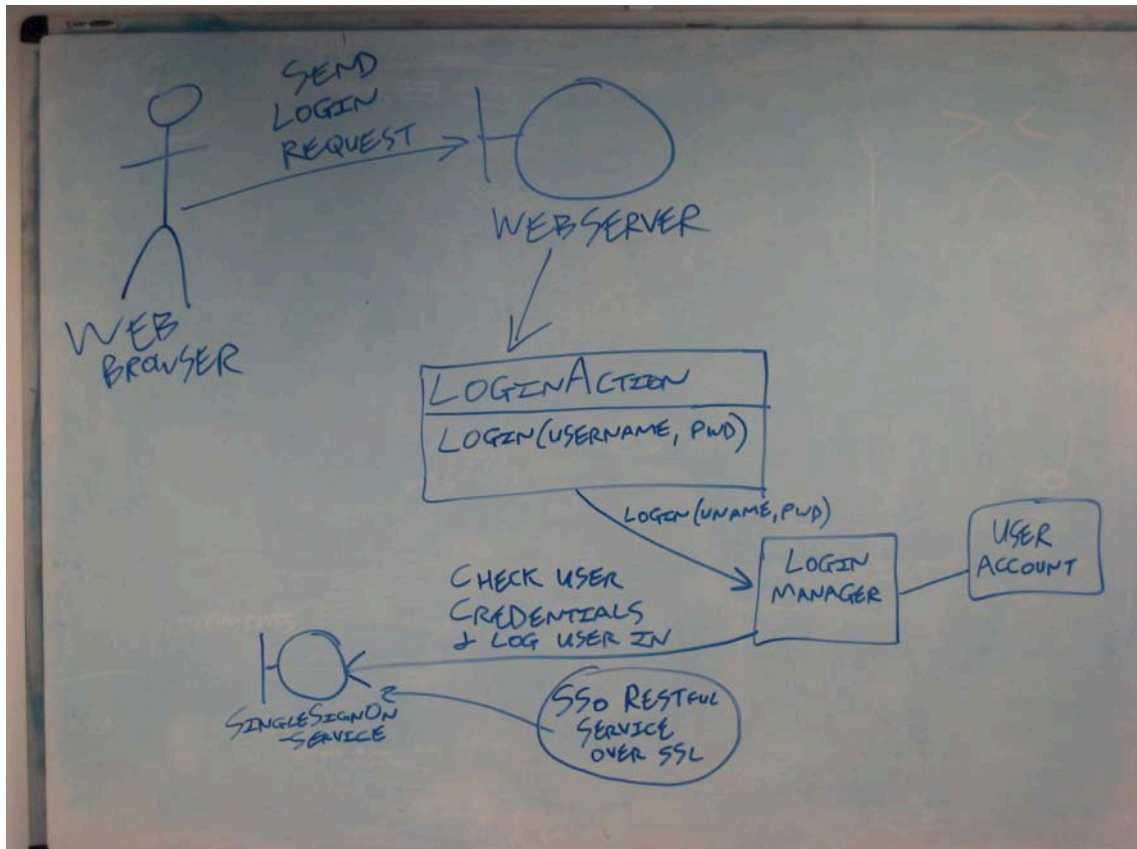 SEND
LOGIN
REQUEST
WEBSERVER
WEB
BROWSER
LOGINACTION
LOGIN(USERNAME, PWD)
LOGIN(UNAME, PWD)
LOGIN
MANAGER
USER
ACCOUNT
CHECK USER
CREDENTIALS
& LOG USER IN
SINGLESIGNON
-SERVICE
SSO RESTFUL
SERVICE
OVER SSL